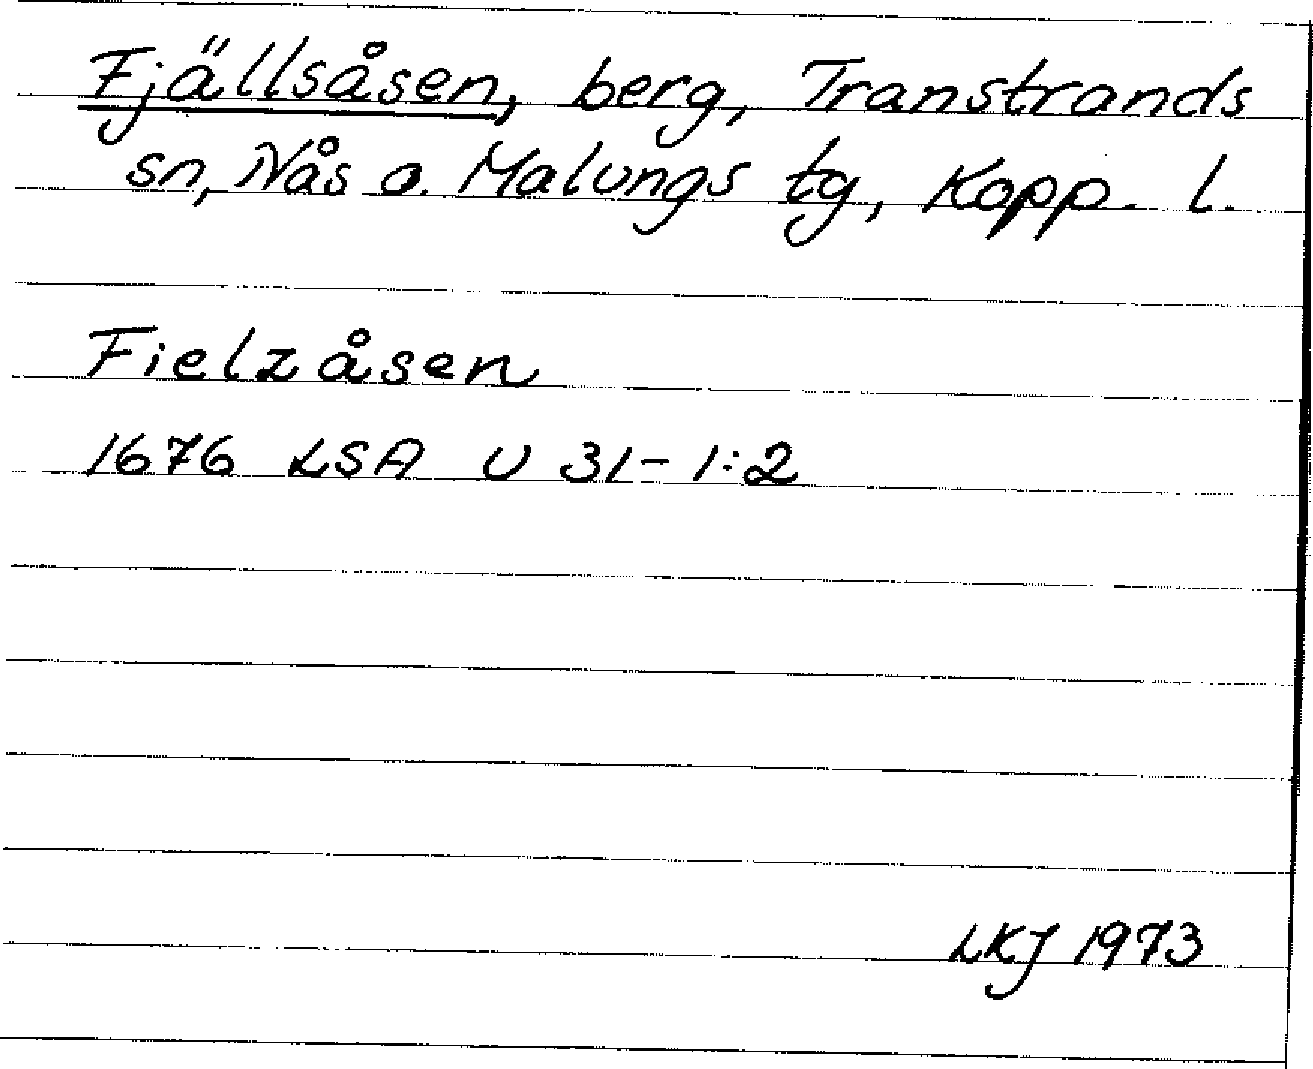 Fjällsåsen, berg, Transtrands
sn, Nås o. Malungs tg, Kopp. l.
Fielzåsen
1676 LSA U 31-1:2
LKJ 1973